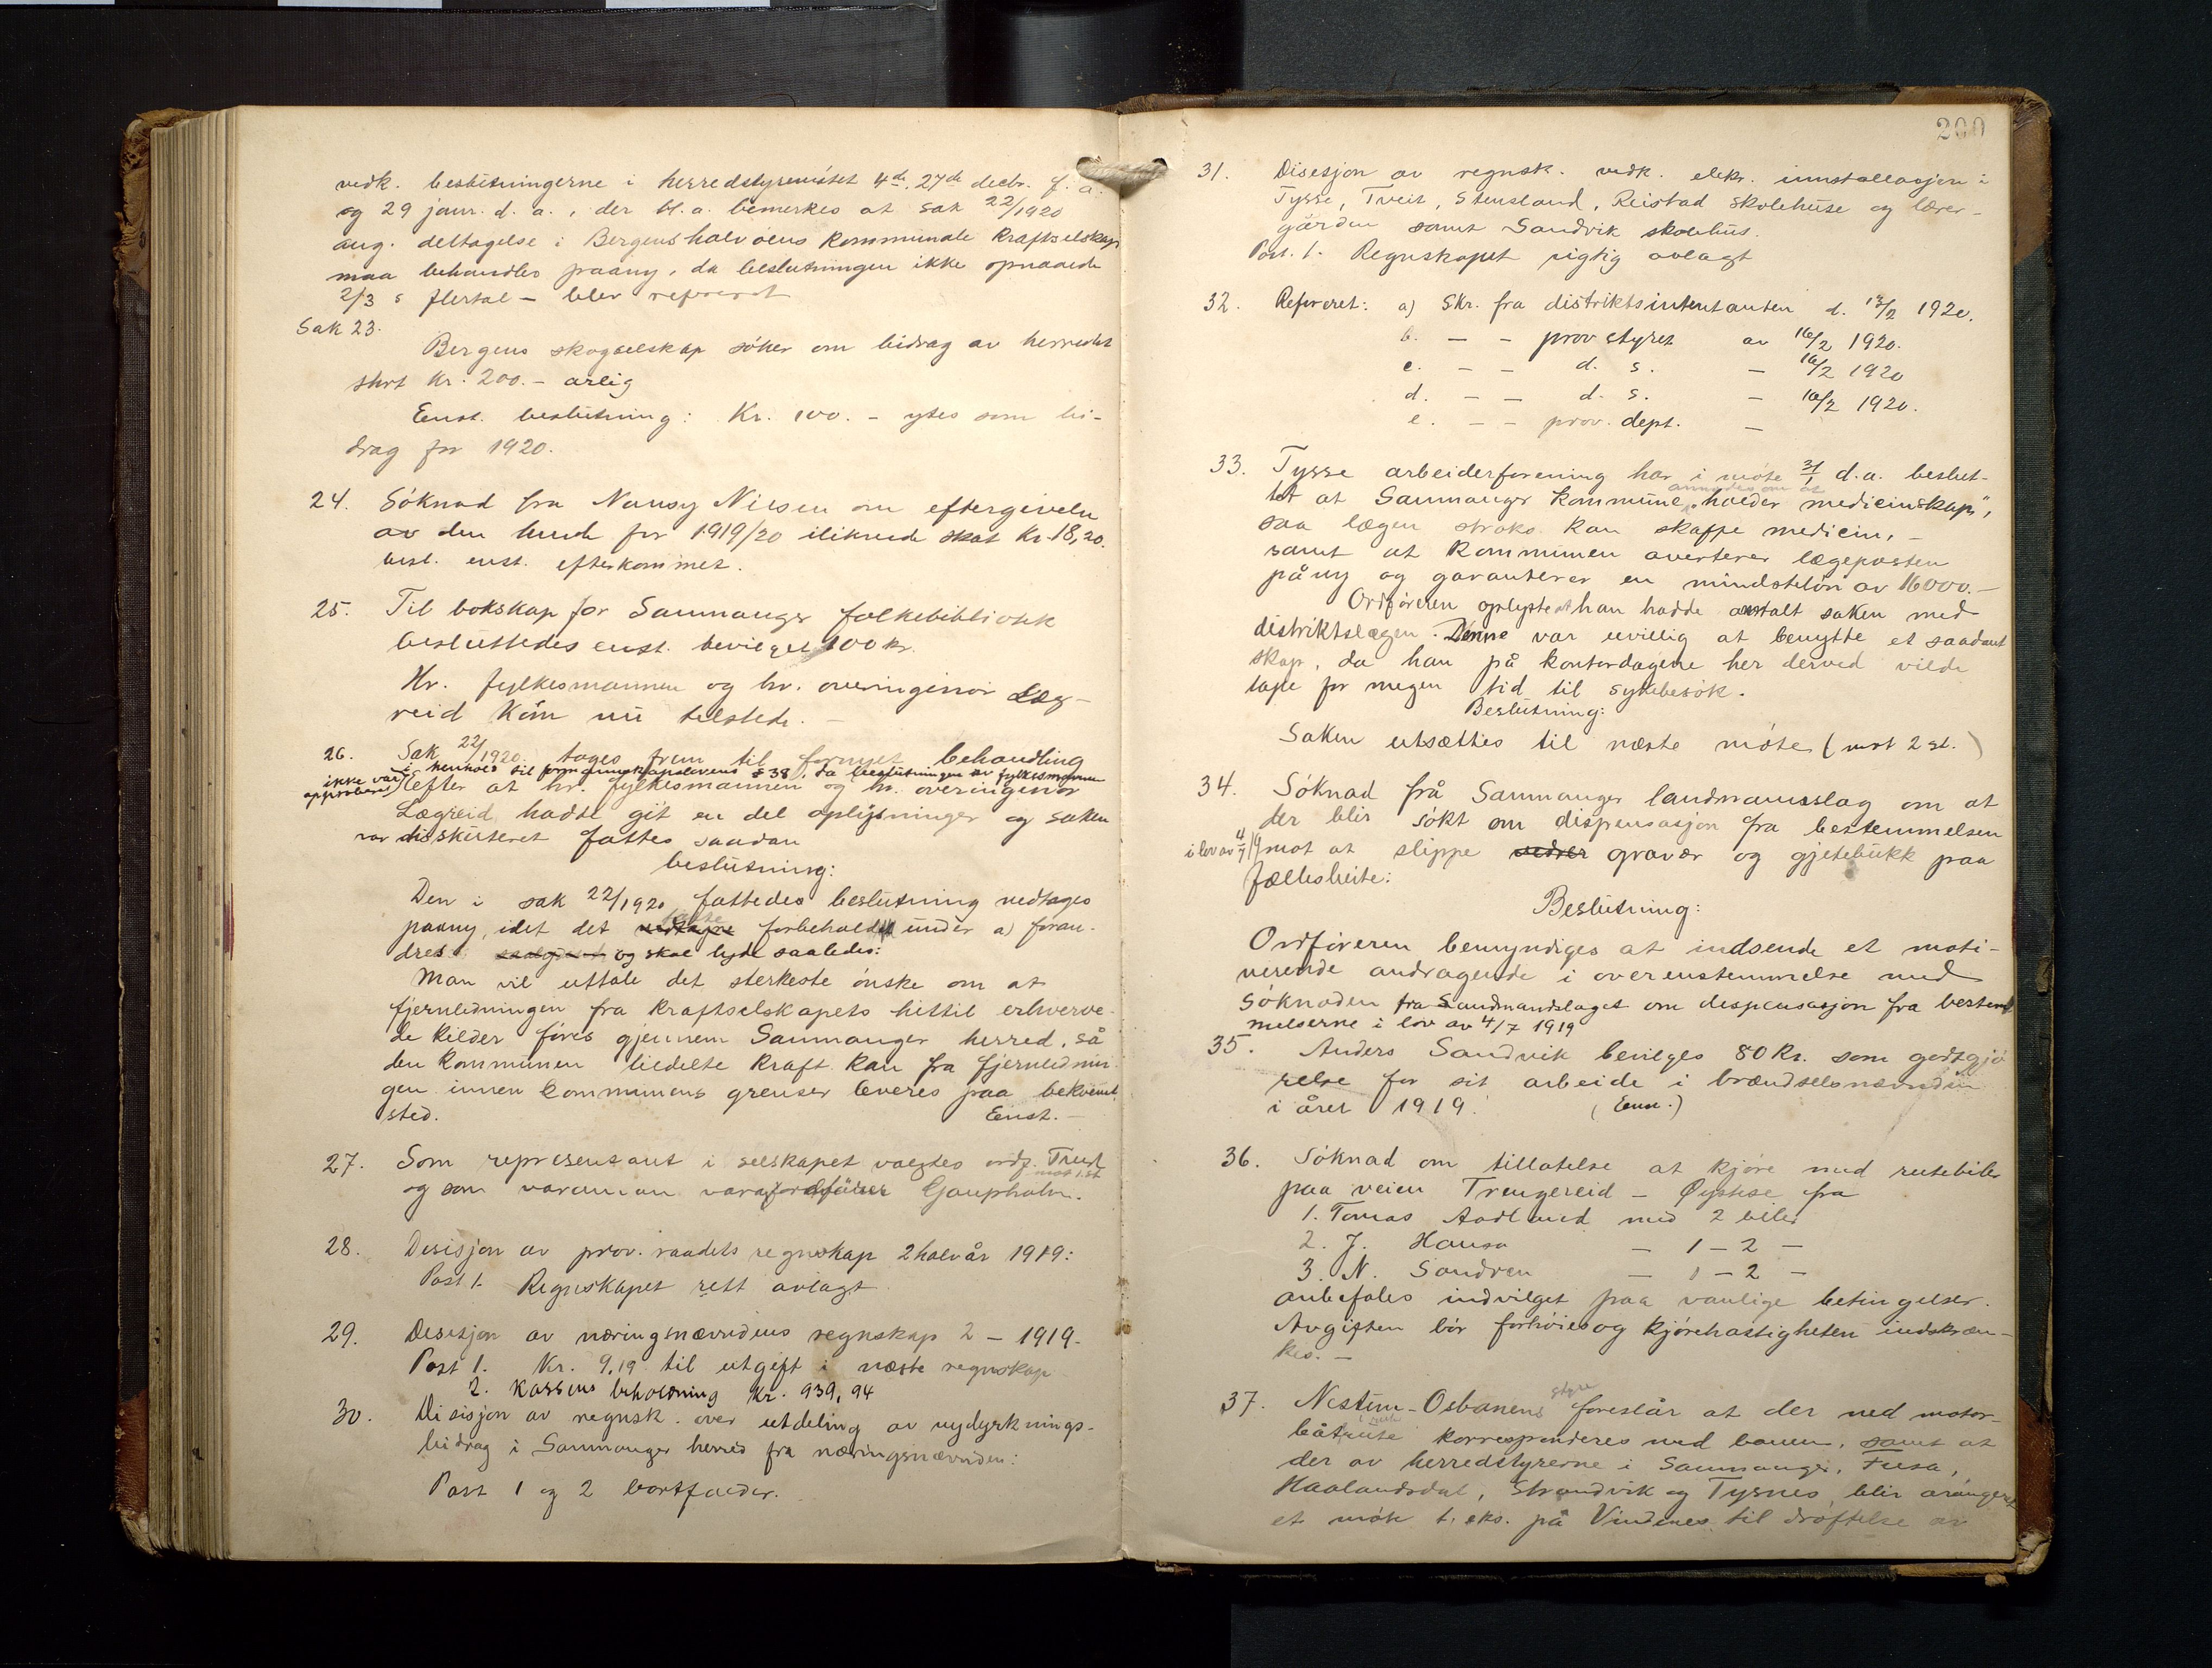 vedk. beslutningerne i herredstyremötet 4de, 27de decbr. f. a.
og 29 janr. d. a., der bl. a. bemerkes at sak 22/1920
ang. deltagelse i Bergenshalvöens Kommunale Kraftselskap
maa behandles paany, da beslutningen ikke opnaaede
2/3 s flertal - blev referert
Sak 23.
Bergens skogselskap söker om bidrag av herredet
stort Kr. 200.- årlig
Enst. beslutning: Kr. 100. - ytes som bi-
drag for 1920.
24. Söknad fra Nansy Nilsen om eftergivelse
av den hende for 1919/20 iliknede skat Kr. 18,20.
besl. enst. efterkommet.
25. Til bokskap for Samnanger folkebibliotek
besluttedes enst. bevilget 100 kr.
Hr. fylkesmannen og hr. overingeniör Læg-
reid kom nu tilstede. -
26. Sak 22/1920 tages frem til fornyet behandling
i henhold til formannskapslovens § 38, da beslutningen av fylkesmannen
ikke var approberet) (efter at hr. fylkesmannen og hr. overingeniör
Lægreid hadde git en del oplysninger og saken
var diskuteret fattes saadan
beslutning:
Den i sak 22/1920 fattedes beslutning vedtages
paany, idet det vedtagne forbehold under a) foran-
dres og skal lyde saaledes:
Man vil uttale det sterkeste önske om at
fjernledningen fra Kraftselskapets hittil erhverve-
de kilder föres gjennem Samnanger herred, så
den kommunen tildelte kraft kan fra fjernlednin-
gen innen kommunens grenser leveres paa bekvemt
sted. Enst. -
27. Som representant i selskapet valgtes ordf. Trud
mot 1 st.
og som varaman varaordförer Gaupholm.
28. Desisjon av prov. raadets regnskap 2 halvår 1919:
Post 1. Regnskapet rett avlagt
29. Desisjon av næringsnævndens regnskap 2 - 1919.
Post 1. Kr. 9.19 til utgift i næste regnskap
2. Kassens beholdning Kr. 939,94
30. Disisjon av regnsk. over utdeling av nydyrknings-
bidrag i Samnanger herred fra næringsnævnden:
Post 1 og 2 bortfalder.
200
31. Disesjon av regnsk. vedk. elekr. innstallasjon i
Tysse, Tveit, Stensland, Reistad skolehuse og lærer-
gården samt Sandvik skolehus.
Post. 1. Regnskapet rigtig avlagt
32. Referert: a) Skr. fra distriktsintentanten d. 13/2 1920.
b. - - provstyret av 16/2 1920.
c. - - d. s. - 16/2 1920
d. - - d. s. - 16/2 1920.
e. - - prov. dept. -
33. Tysse arbeiderforening har i möte 31/1 d.a. beslut-
anmodes om at
tet at Samnanger kommune holder "medicinskap",
saa lægen straks kan skaffe medicin, -
samt at kommunen averterer lægeposten
påny og garanterer en mindstelön av 16000.-
Ordföreren oplyste at han hadde omtalt saken med
distriktslægen. Denne var uvillig at benytte et saadant
skap, da han på kontordagene her derved vilde
tape for megen tid til sykebesök.
Beslutning:
Saken utsættes til næste möte (mot 2 st.)
34. Söknad frå Samnanger landmannslag om at
der blir sökt om dispensasjon fra bestemmelsen
i lov av 4/7 19 mot at slippe vedrer gravær og gjetebukk paa
fællesbeite:
Beslutning:
Ordföreren bemyndiges at indsende et moti-
verende andragende i overenstemmelse med
söknaden fra Landmandslaget om despensasjon fra bestem
melserne i lov av 4/7 1919
35. Anders Sandvik bevilges 80 Kr. som godtgjö
relse for sit arbeide i brændselsnævnden
i året 1919. (Enst.)
36. Söknad om tillatelse at kjöre med rutebiler
paa veien Trengereid - Øystese fra
1. Tomas Aadland med 2 biler
2. J. Hansa - 1 - 2 -
3. N. Sandven - 1 - 2 -
anbefales indvilget paa vanlige betingelser.
Avgiften bör forhöies og kjörehastigheten indskræn-
kes. -
37. Nestun-Osbanens styre foreslår at der med motor-
båt i rute korresponderes med banen, samt at
der av herredstyrerne i Samnanger, Fusa,
Haalandsdal, Strandvik og Tysnes, blir aranger
et möte t. eks. på Vindenes til dröftelse av